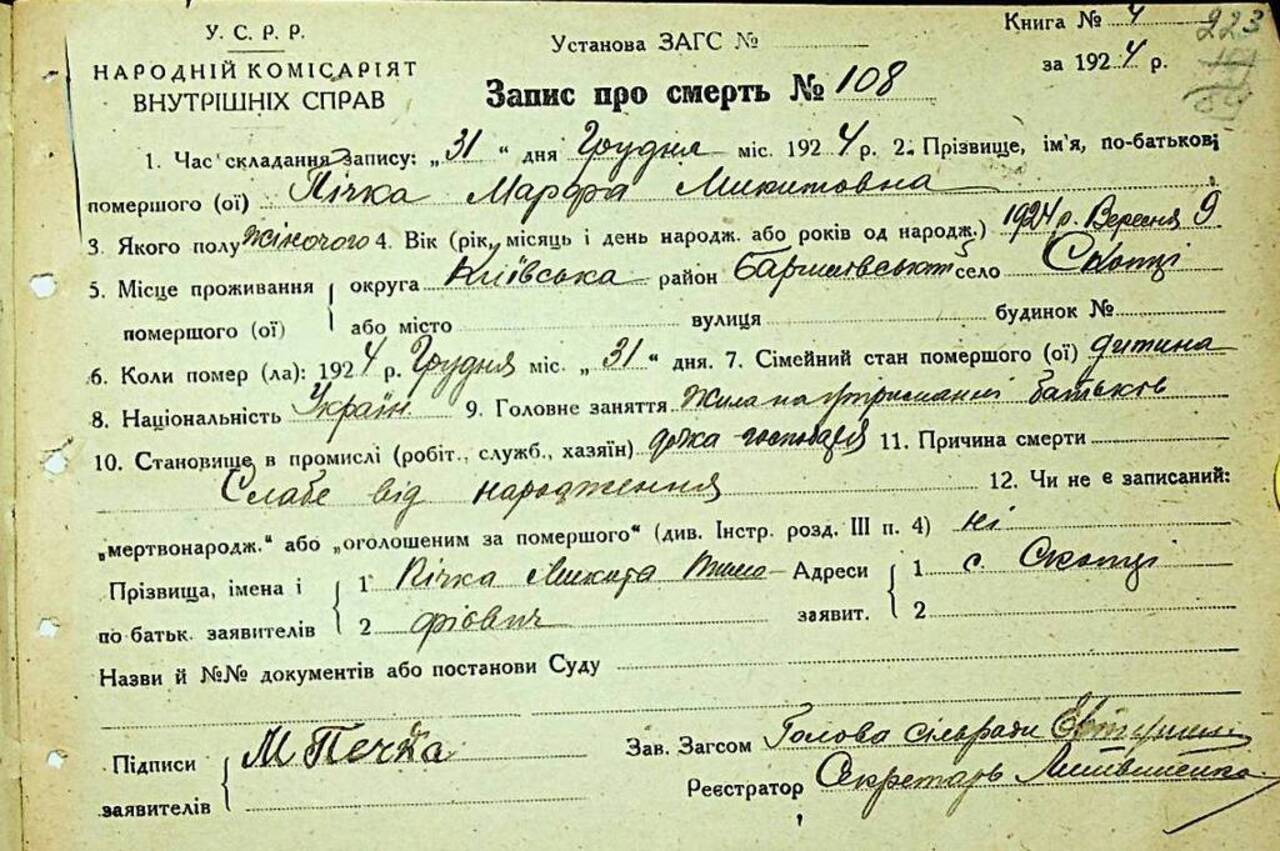 У. С. Р. Р.
НАРОДНІЙ КОМІСАРІЯТ
ВНУТРІШНІХ СПРАВ
Установа ЗАГС №
Книга № 4
223
за 1924 р.
Запис про смерть № 108
1. Час складання запису: „31“ дня Грудня міс. 1924 р. 2. Прізвище, ім'я, по-батькові
помершого (ої) Пічка Марфа Микитовна
3. Якого полу жіночого 4. Вік (рік, місяць і день народж. або років од народж.) 1924 р. Вересня 9
5. Місце проживання округа Київська район село Скопці
помершого (ої) або місто вулиця будинок №
6. Коли помер (ла): 1924 р. Грудня міс. „31“ дня. 7. Сімейний стан помершого (ої) дитина
8. Національність Україн 9. Головне заняття Жила на утриманні батьков
10. Становище в промислі (робіт., служб., хазяїн) дочка господаря 11. Причина смерти
Слабе від народження 12. Чи не є записаний:
„мертвонародж.“ або „оголошеним за помершого“ (див. Інстр. розд. III п. 4) ні
Прізвища, імена і 1 Пічка Микита Тимо- Адреси 1 с. Скопці
по батьк. заявителів 2 фієвич заявит. 2
Назви й №№ документів або постанови Суду
Підписи М Печка Зав. Загсом Голова сільради
заявителів Реєстратор Секретарь